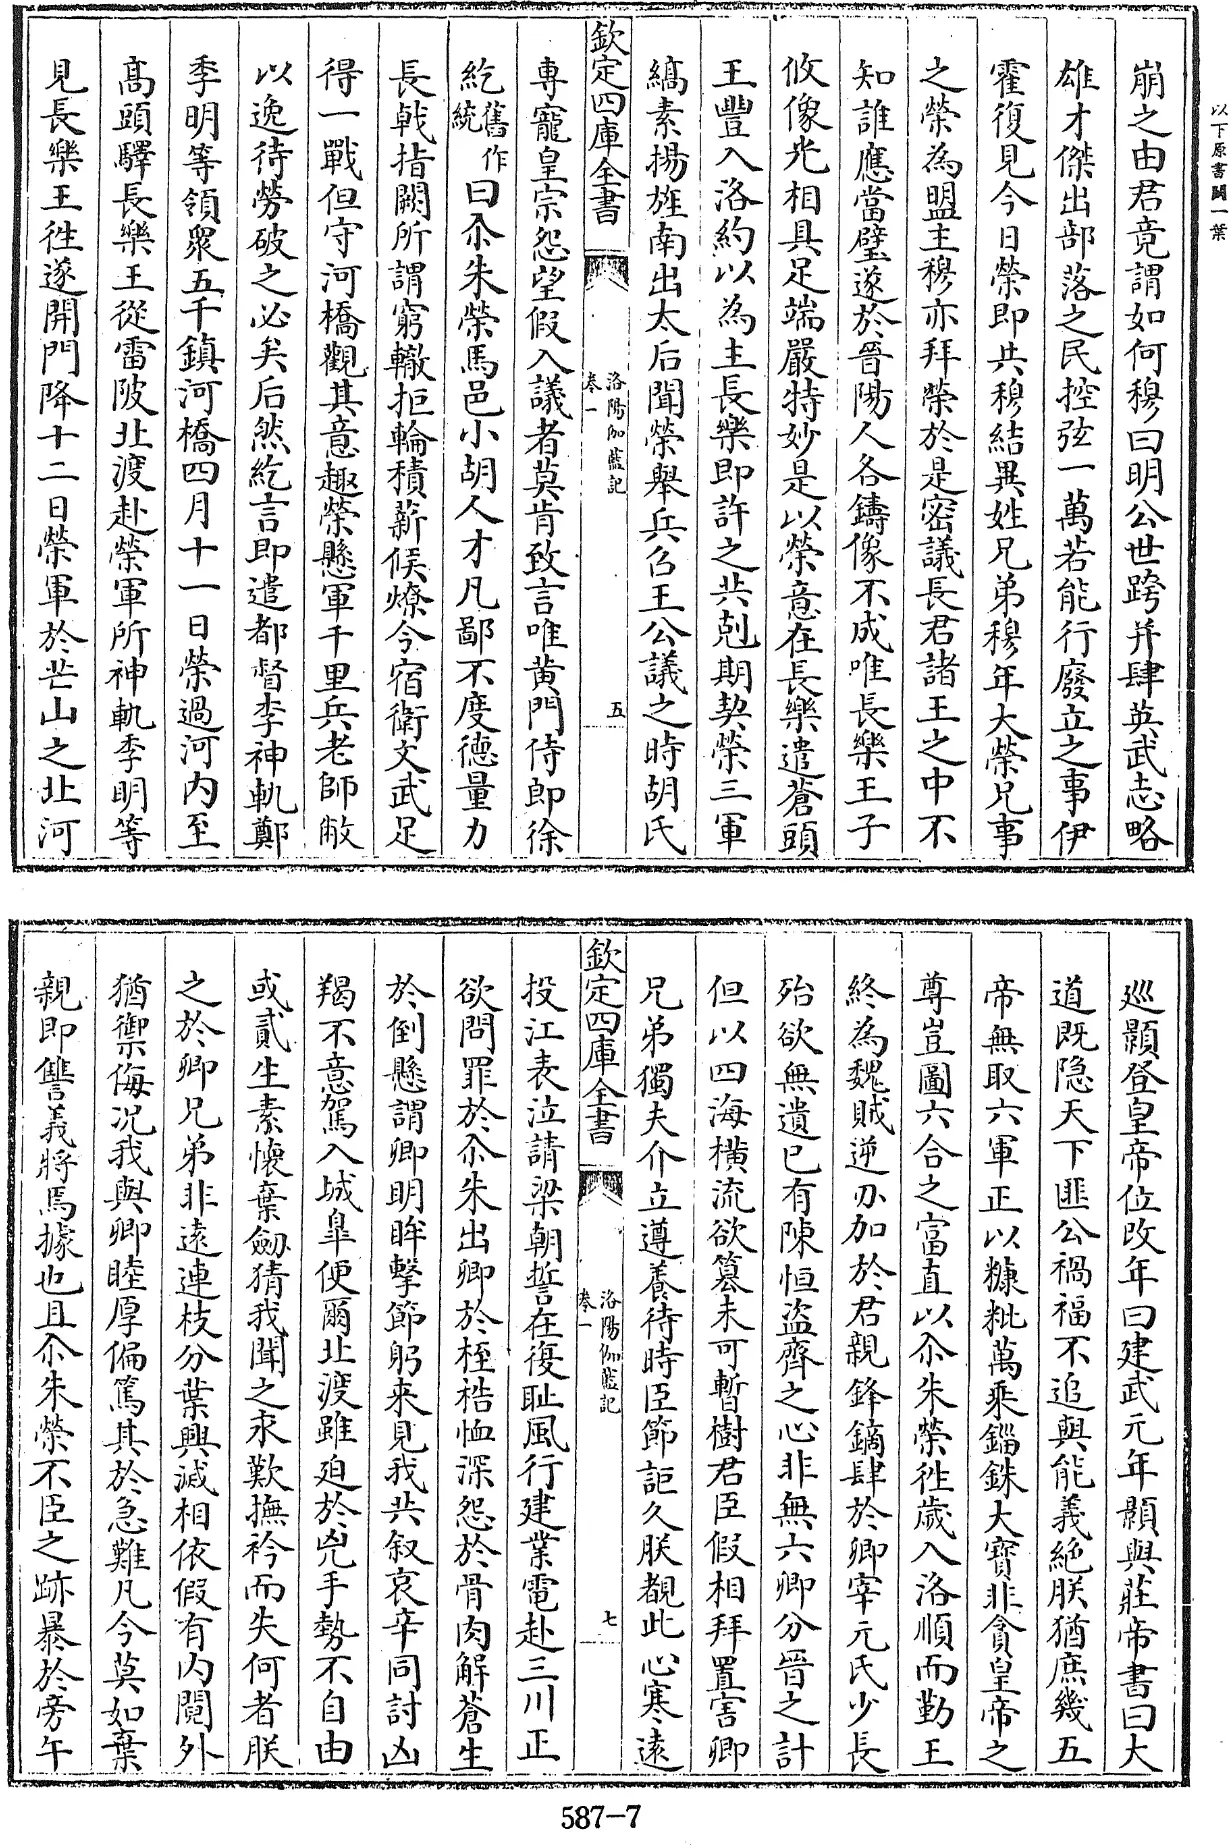 以下原書闕一葉
崩之由君竟謂如何穆曰明公世跨并肆英武志略
雄才傑出部落之民控弦一萬若能行廢立之事伊
霍復見今日榮即共穆結異姓兄弟穆年大榮兄事
之榮為盟主穆亦拜榮於是密議長君諸王之中不
知誰應當璧遂於晉陽人各鑄像不成唯長樂王子
攸像光相具足端嚴特妙是以榮意在長樂遣蒼頭
王豐入洛約以為主長樂即許之共剋期契榮三軍
縞素揚旌南出太后聞榮舉兵召王公議之時胡氏
欽定四庫全書
洛陽伽藍記
卷一
五
專寵皇宗怨望假入議者莫肯致言唯黄門侍郎徐
紇舊作統曰尒朱榮馬邑小胡人才凡鄙不度德量力
長戟指闕所謂窮轍拒輪積薪候燎今宿衛文武足
得一戰但守河橋觀其意趣榮懸軍千里兵老師敝
以逸待勞破之必矣后然紇言即遣都督李神軌鄭
季明等領衆五千鎮河橋四月十一日榮過河内至
髙頭驛長樂王從雷陂北渡赴榮軍所神軌季明等
見長樂王徃遂開門降十二日榮軍於芒山之北河
廵顥登皇帝位改年曰建武元年顥與莊帝書曰大
道既隐天下匪公禍福不追與能義絶朕猶庶幾五
帝無取六軍正以糠粃萬乘錙銖大寳非貪皇帝之
尊豈圖六合之富直以尒朱榮徃歳入洛順而勤王
終為魏賊逆刃加於君親鋒鏑肆於卿宰元氏少長
殆欲無遺已有陳恒盜齊之心非無六卿分晉之計
但以四海横流欲簒未可暫樹君臣假相拜置害卿
兄弟獨夫介立遵養待時臣節詎久朕覩此心寒逺
欽定四庫全書
洛陽伽藍記
卷一
七
投江表泣請梁朝誓在復耻風行建業電赴三川正
欲問罪於尒朱出卿於桎梏恤深怨於骨肉解蒼生
於倒懸謂卿明眸擊節躬来見我共叙哀辛同討凶
羯不意駕入城臯便爾北渡雖廹於兇手勢不自由
或貳生素懐棄劒猜我聞之永歎撫衿而失何者朕
之於卿兄弟非逺連枝分葉興滅相依假有内䦧外
猶禦侮况我與卿睦厚偏篤其於急難凡今莫如棄
親即讐義將焉據也且尒朱榮不臣之跡暴於旁午
587-7